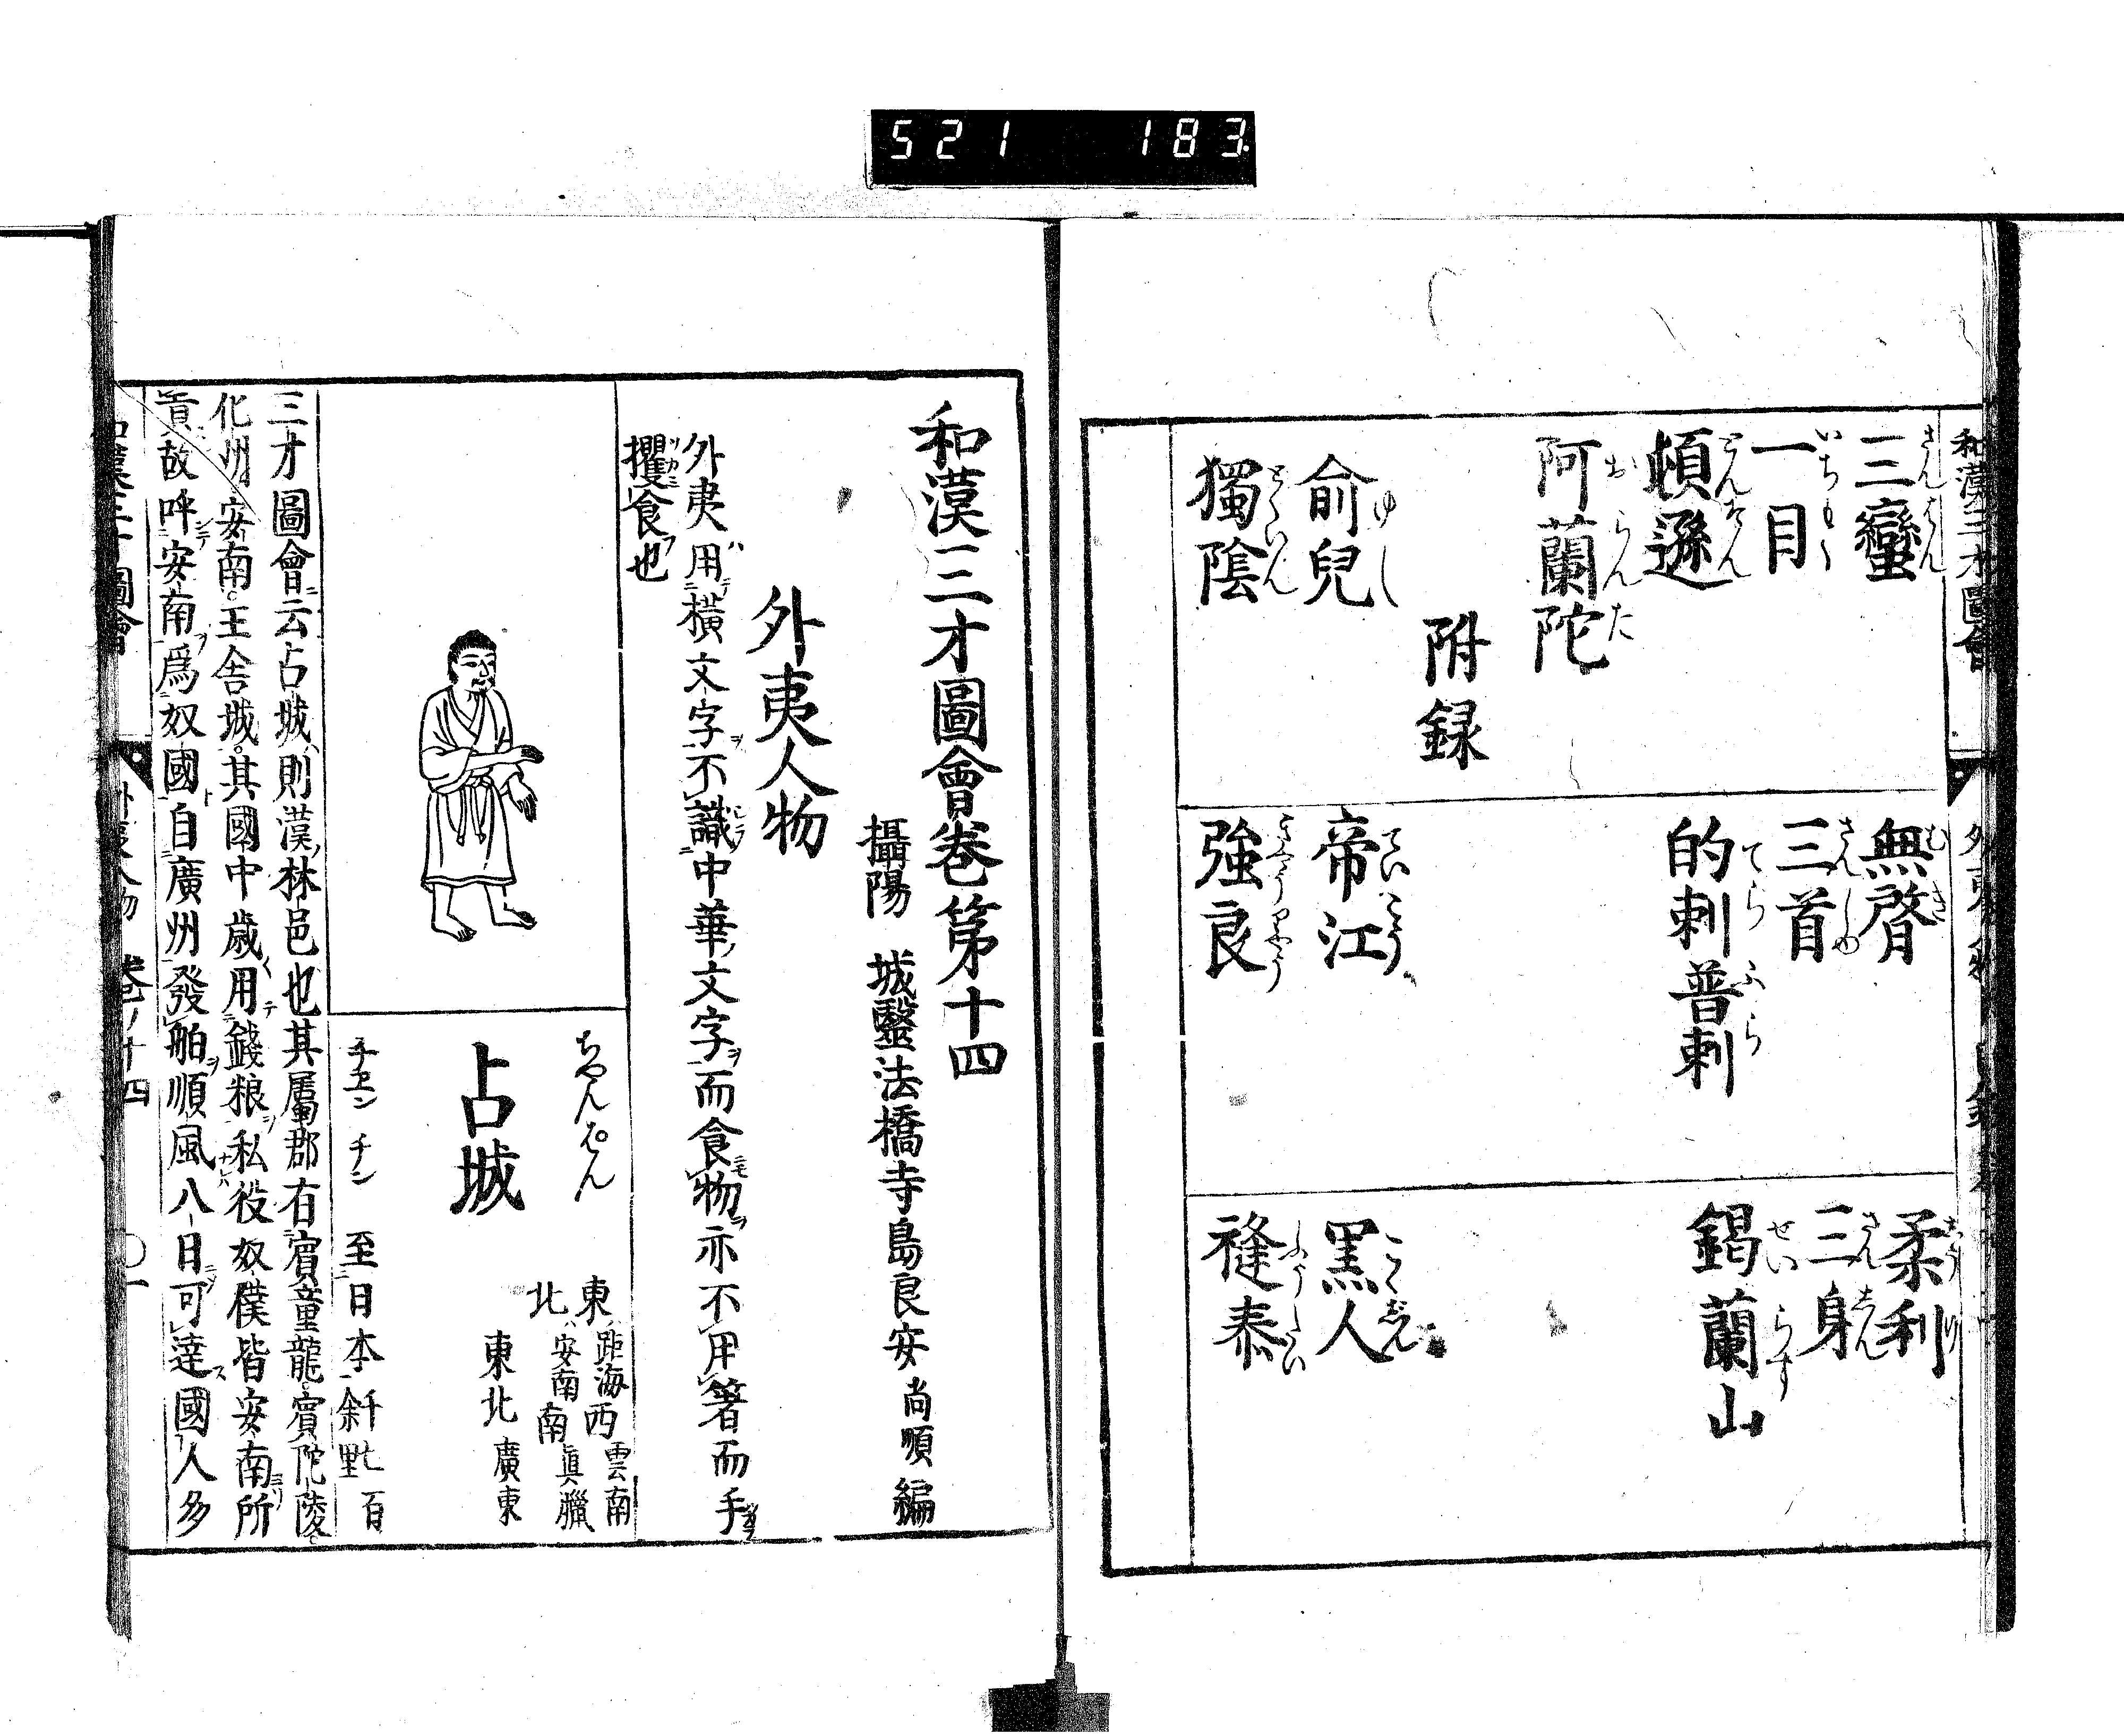 521 183
和漢三才圖會
三蠻 無䏿 柔利
一目 三首 三身
頓遜 的剌普剌 錫蘭山
阿蘭陀
附録
俞兒 帝江 黒人
獨陰 強良 䙜㤗
和漢三才圖會卷第十四
攝陽 城醫法橋寺島良安尚順編
外夷人物
外夷用横文字不識中華文字而食物亦不用箸而手
攫食也
ちやんぱん
占城
チエン チン
東距海西雲南
北安南南真臘
東北廣東
至日本斜千七百
里
三才圖會云占城則漢林邑也其屬郡有賓童龍賓陀陵
化州安南王舎城其國中歳用錢粮私役奴僕皆安南所
貢故呼安南爲奴國自廣州發舶順風八日可達國人多
和漢三才圖會 外夷人物 卷ノ十四 〇一